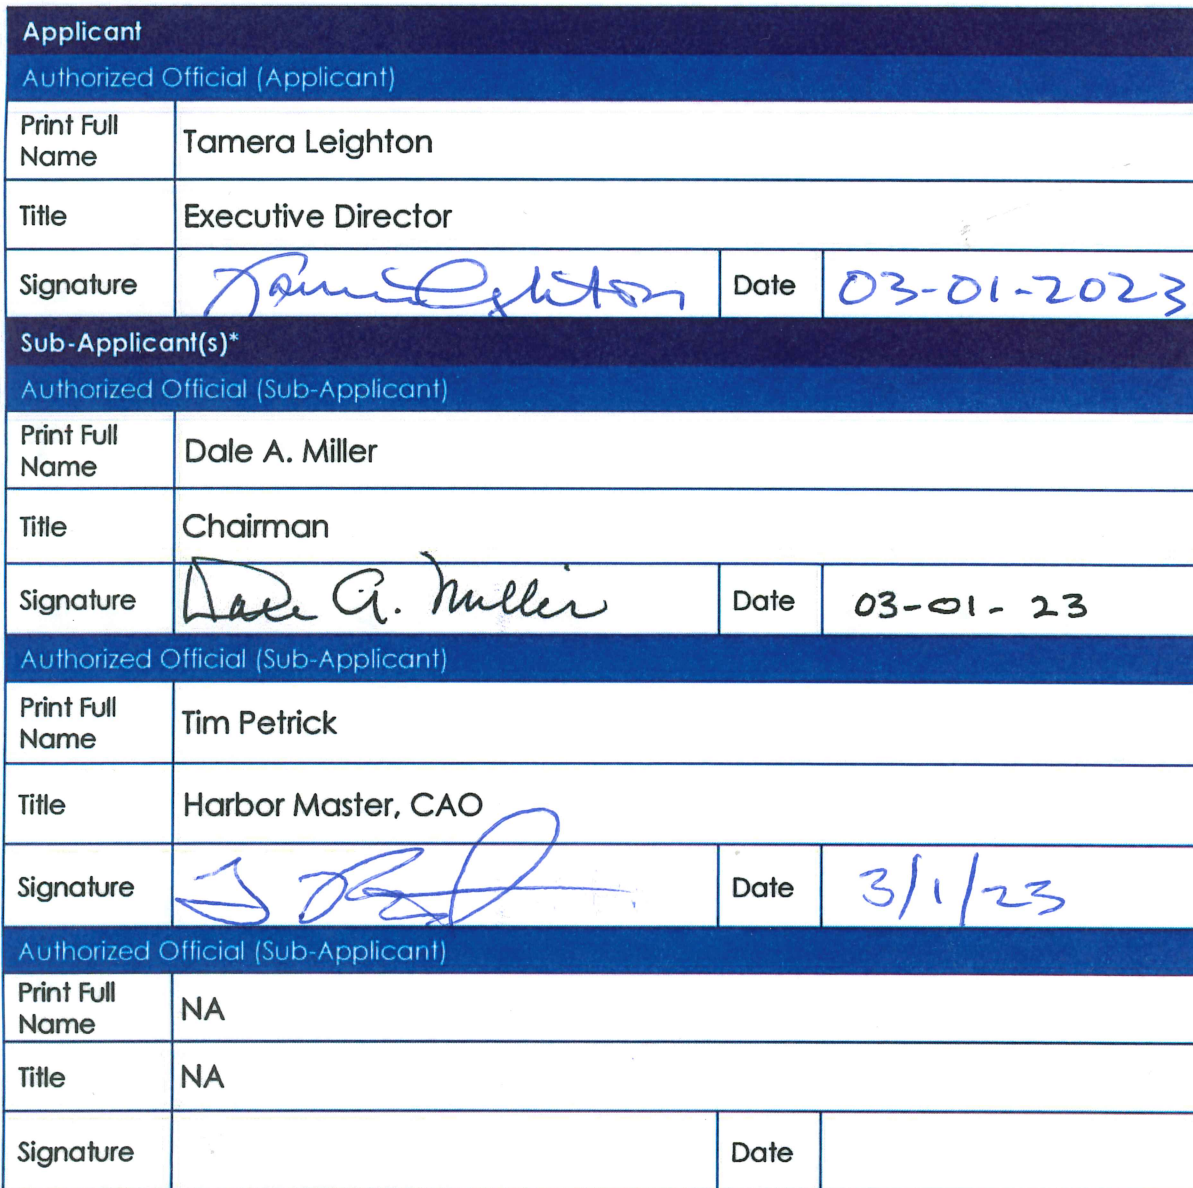 Applicant
Authorized Official (Applicant)
Print Full Name Tamera Leighton
Title Executive Director
Signature Tamera Leighton Date 03-01-2023
Sub-Applicant(s)*
Authorized Official (Sub-Applicant)
Print Full Name Dale A. Miller
Title Chairman
Signature Dale A. Miller Date 03-01-23
Authorized Official (Sub-Applicant)
Print Full Name Tim Petrick
Title Harbor Master, CAO
Signature Date 3/1/23
Authorized Official (Sub-Applicant)
Print Full Name NA
Title NA
Signature Date